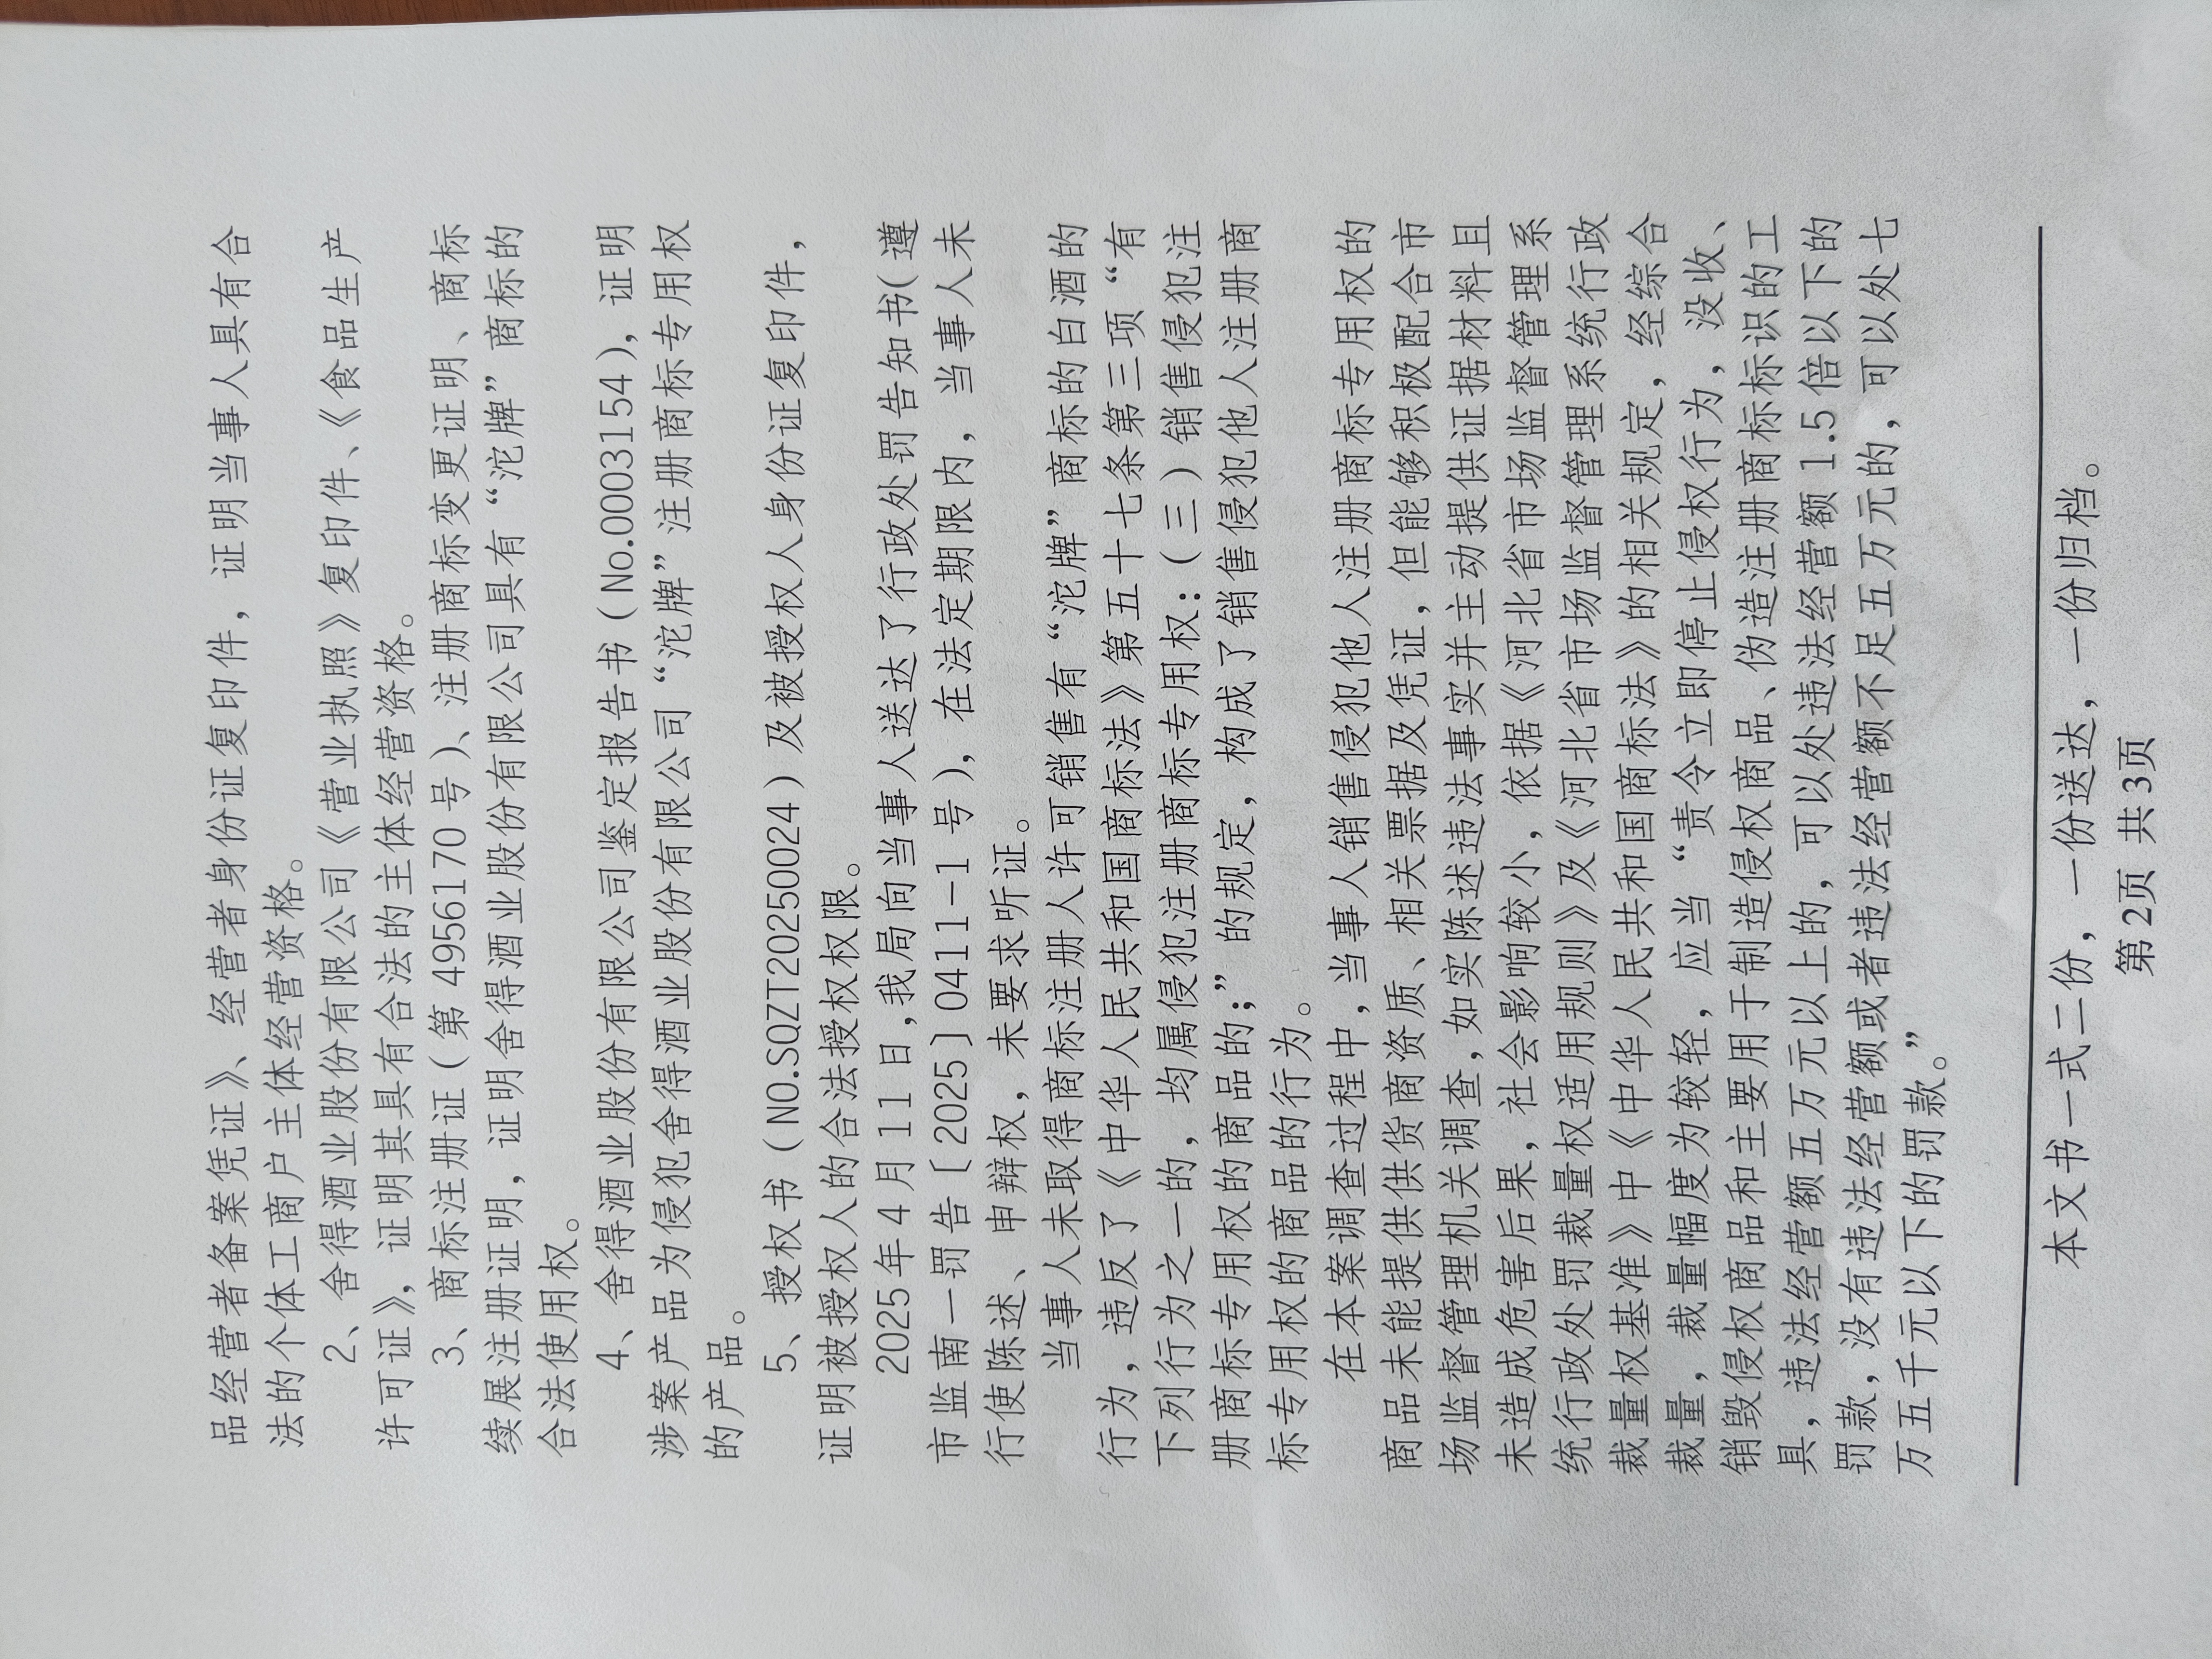 品经营者备案凭证》、经营者身份证复印件，证明当事人具有合
法的个体工商户主体经营资格。
2、舍得酒业股份有限公司《营业执照》复印件、《食品生产
许可证》，证明其具有合法的主体经营资格。
3、商标注册证（第 4956170 号）、注册商标变更证明、商标
续展注册证明，证明舍得酒业股份有限公司具有“沱牌”商标的
合法使用权。
4、舍得酒业股份有限公司鉴定报告书（No.00031154），证明
涉案产品为侵犯舍得酒业股份有限公司“沱牌”注册商标专用权
的产品。
5、授权书（NO.SQZT20250024）及被授权人身份证复印件，
证明被授权人的合法授权权限。
2025 年 4 月 11 日,我局向当事人送达了行政处罚告知书（遵
市监南一罚告［2025］0411-1 号），在法定期限内，当事人未
行使陈述、申辩权，未要求听证。
当事人未取得商标注册人许可销售有“沱牌”商标的白酒的
行为，违反了《中华人民共和国商标法》第五十七条第三项“有
下列行为之一的，均属侵犯注册商标专用权:（三）销售侵犯注
册商标专用权的商品的;”的规定，构成了销售侵犯他人注册商
标专用权的商品的行为。
在本案调查过程中,当事人销售侵犯他人注册商标专用权的
商品未能提供供货商资质、相关票据及凭证，但能够积极配合市
场监督管理机关调查,如实陈述违法事实并主动提供证据材料且
未造成危害后果，社会影响较小，依据《河北省市场监督管理系
统行政处罚裁量权适用规则》及《河北省市场监督管理系统行政
裁量权基准》中《中华人民共和国商标法》的相关规定，经综合
裁量，裁量幅度为较轻，应当“责令立即停止侵权行为，没收、
销毁侵权商品和主要用于制造侵权商品、伪造注册商标标识的工
具，违法经营额五万元以上的，可以处违法经营额 1.5 倍以下的
罚款，没有违法经营额或者违法经营额不足五万元的，可以处七
万五千元以下的罚款。”
本文书一式二份，一份送达，一份归档。
第2页 共3页